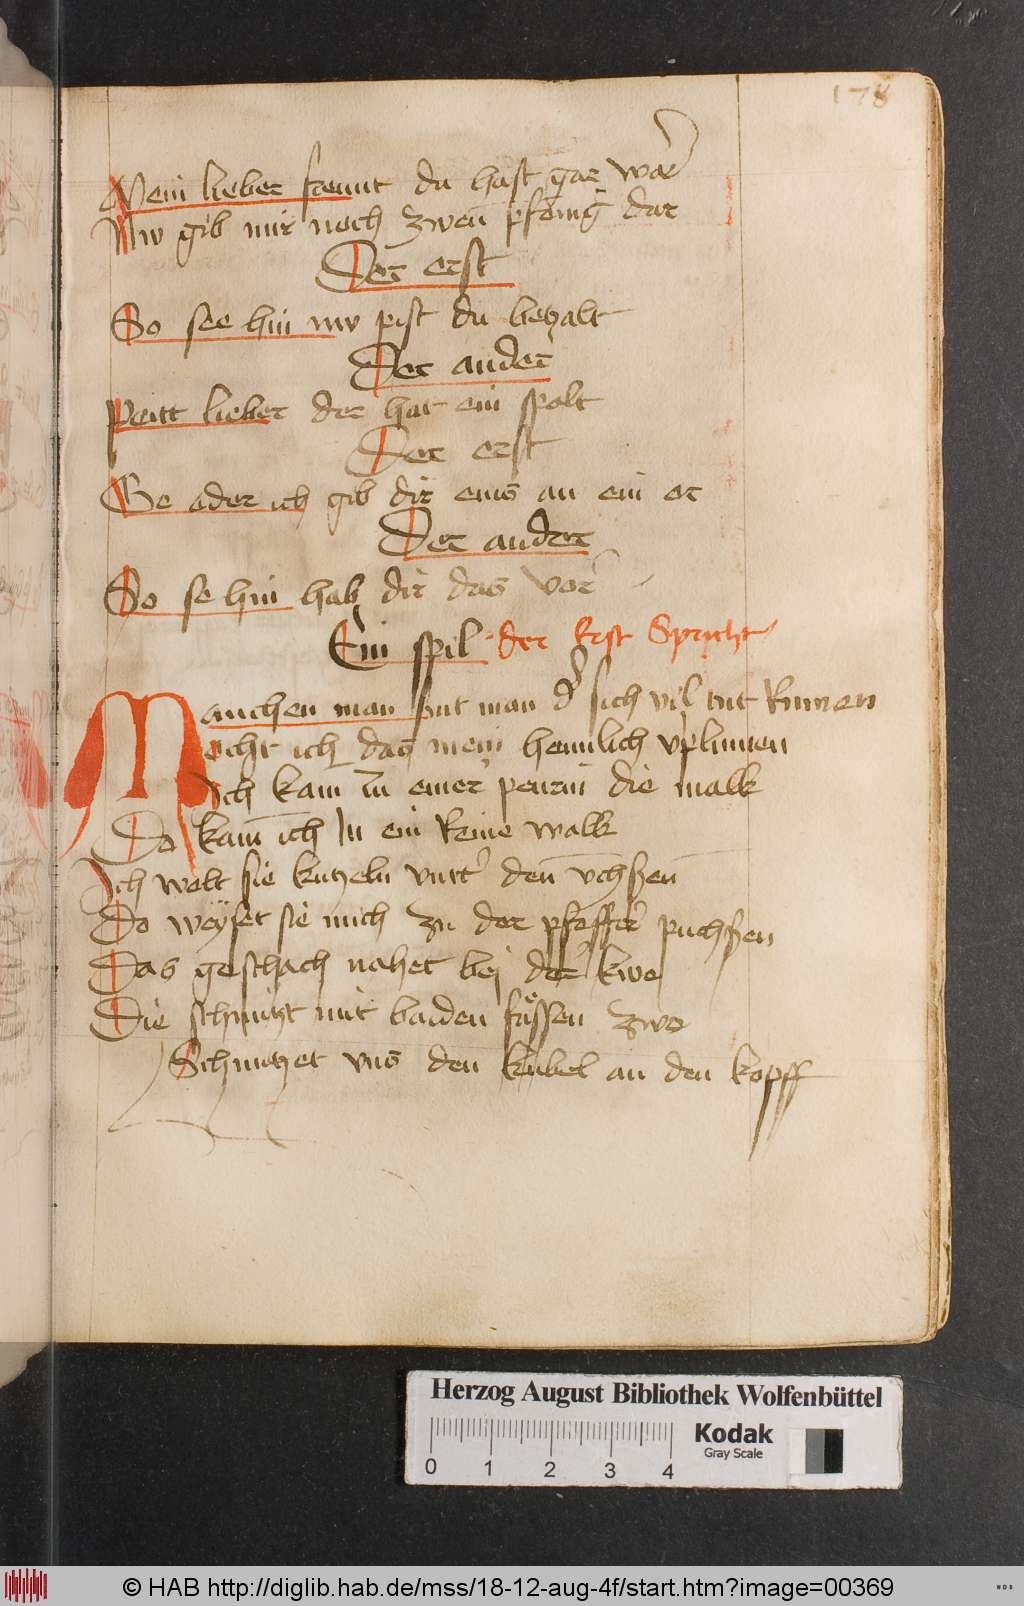 178
Mein lieber freunt du hast gar war
Nw gib mir noch zwen pfenig dar
Der erst
So see hin nw pist du betzalt
Der ander
Peitt lieber der hat ein spalt
Der erst
Ge oder ich gib dir eins an ein or
Der ander
So se hin hab dir das vor
Ein spil der Erst Spricht
Manchen man hut man d sich vil tut Rumen
ocht ich das mein heimlich
Ich kam zu einer peurin die malk
Do kam ich In ein Keine walk
Ich wolt sie kutzeln vntter den vchsen
Do weyset sie mich zu der pfeffer puchsen
Das geschach nahet bei der kwe
Die schmitzt mit baiden füssen zwe
Schmitzet vns den kubel an den kopff
Herzog August Bibliothek Wolfenbüttel
Kodak
Gray Scale
0 1 2 3 4
© HAB http://diglib.hab.de/mss/18-12-aug-4f/start.htm?image=00369